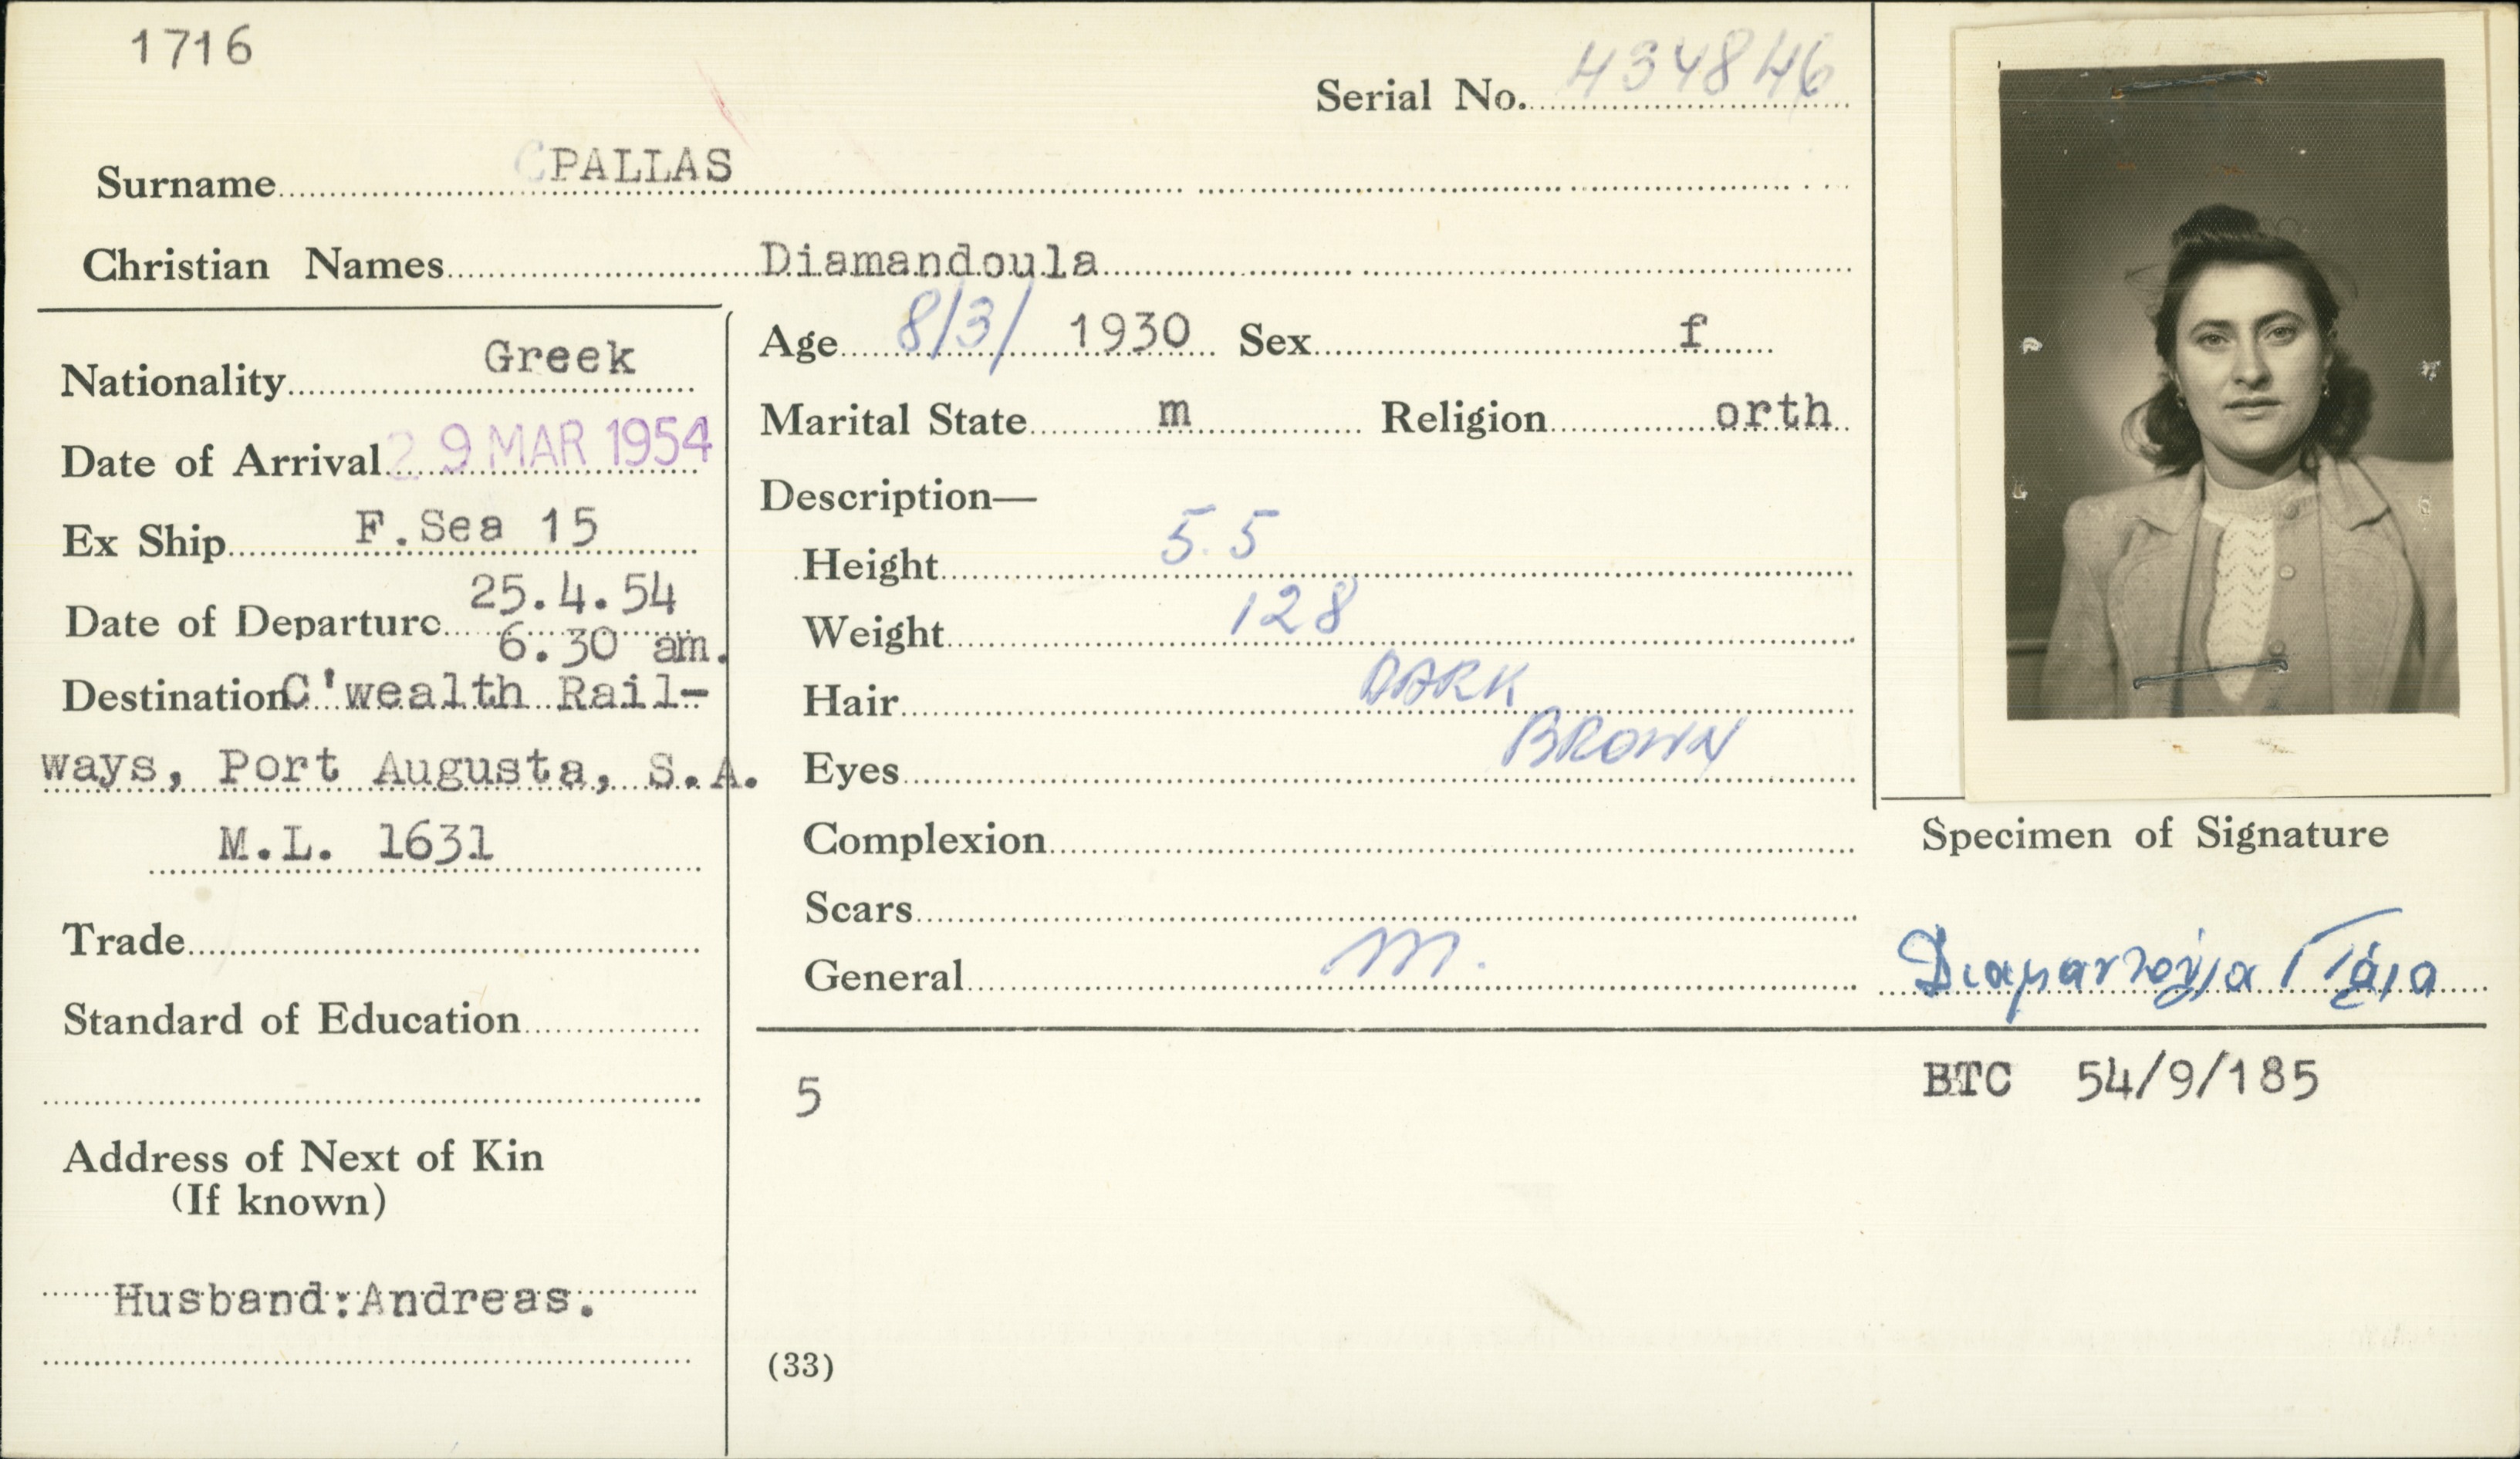 1716
Serial No. 434846
Surname PALLAS
Christian Names Diamandoula
Nationality Greek
Date of Arrival 29 MAR 1954
Ex Ship F.Sea 15
Date of Departure 25.4.54
6.30 am.
Destination C'wealth Rail-
ways, Port Augusta, S.A.
M.L. 1631
Trade
Standard of Education
Address of Next of Kin
(If known)
Husband:Andreas.
Age 8/3/ 1930 Sex f
Marital State m Religion orth
Description—
Height 5.5
Weight 128
Hair DARK
Eyes BROWN
Complexion
Scars
General M.
5
(33)
Specimen of Signature
Διαμαντούλα
BTC 54/9/185